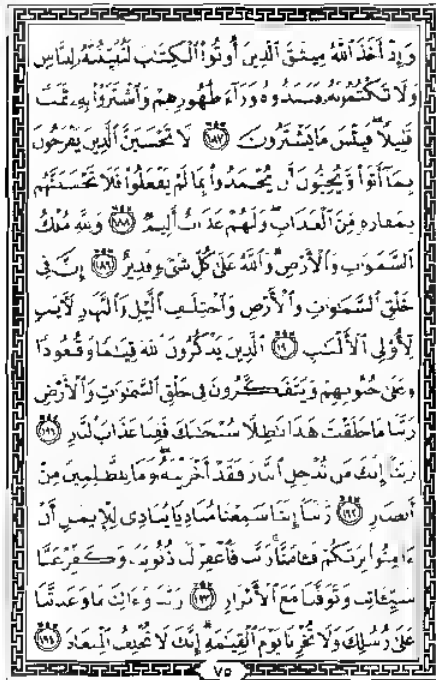 وَإِذْ أَخَذَ ٱللَّهُ مِيثَٰقَ ٱلَّذِينَ أُوتُوا۟ ٱلْكِتَٰبَ لَتُبَيِّنُنَّهُۥ لِلنَّاسِ
وَلَا تَكْتُمُونَهُۥ فَنَبَذُوهُ وَرَآءَ ظُهُورِهِمْ وَٱشْتَرَوْا۟ بِهِۦ ثَمَنًا
قَلِيلًا ۖ فَبِئْسَ مَا يَشْتَرُونَ ١٨٧ لَا تَحْسَبَنَّ ٱلَّذِينَ يَفْرَحُونَ
بِمَآ أَتَوا۟ وَّيُحِبُّونَ أَن يُحْمَدُوا۟ بِمَا لَمْ يَفْعَلُوا۟ فَلَا تَحْسَبَنَّهُم
بِمَفَازَةٍ مِّنَ ٱلْعَذَابِ ۖ وَلَهُمْ عَذَابٌ أَلِيمٌ ١٨٨ وَلِلَّهِ مُلْكُ
ٱلسَّمَٰوَٰتِ وَٱلْأَرْضِ ۗ وَٱللَّهُ عَلَىٰ كُلِّ شَىْءٍ قَدِيرٌ ١٨٩ إِنَّ فِى
خَلْقِ ٱلسَّمَٰوَٰتِ وَٱلْأَرْضِ وَٱخْتِلَٰفِ ٱلَّيْلِ وَٱلنَّهَارِ لَءَايَٰتٍ
لِّأُو۟لِى ٱلْأَلْبَٰبِ ١٩٠ ٱلَّذِينَ يَذْكُرُونَ ٱللَّهَ قِيَٰمًا وَقُعُودًا
وَعَلَىٰ جُنُوبِهِمْ وَيَتَفَكَّرُونَ فِى خَلْقِ ٱلسَّمَٰوَٰتِ وَٱلْأَرْضِ
رَبَّنَا مَا خَلَقْتَ هَٰذَا بَٰطِلًا سُبْحَٰنَكَ فَقِنَا عَذَابَ ٱلنَّارِ ١٩١
رَبَّنَآ إِنَّكَ مَن تُدْخِلِ ٱلنَّارَ فَقَدْ أَخْزَيْتَهُۥ ۖ وَمَا لِلظَّٰلِمِينَ مِنْ
أَنصَارٍ ١٩٢ رَّبَّنَآ إِنَّنَا سَمِعْنَا مُنَادِيًا يُنَادِى لِلْإِيمَٰنِ أَنْ
ءَامِنُوا۟ بِرَبِّكُمْ فَـَٔامَنَّا ۚ رَبَّنَا فَٱغْفِرْ لَنَا ذُنُوبَنَا وَكَفِّرْ عَنَّا
سَيِّـَٔاتِنَا وَتَوَفَّنَا مَعَ ٱلْأَبْرَارِ ١٩٣ رَبَّنَا وَءَاتِنَا مَا وَعَدتَّنَا
عَلَىٰ رُسُلِكَ وَلَا تُخْزِنَا يَوْمَ ٱلْقِيَٰمَةِ ۗ إِنَّكَ لَا تُخْلِفُ ٱلْمِيعَادَ ١٩٤
٧٥